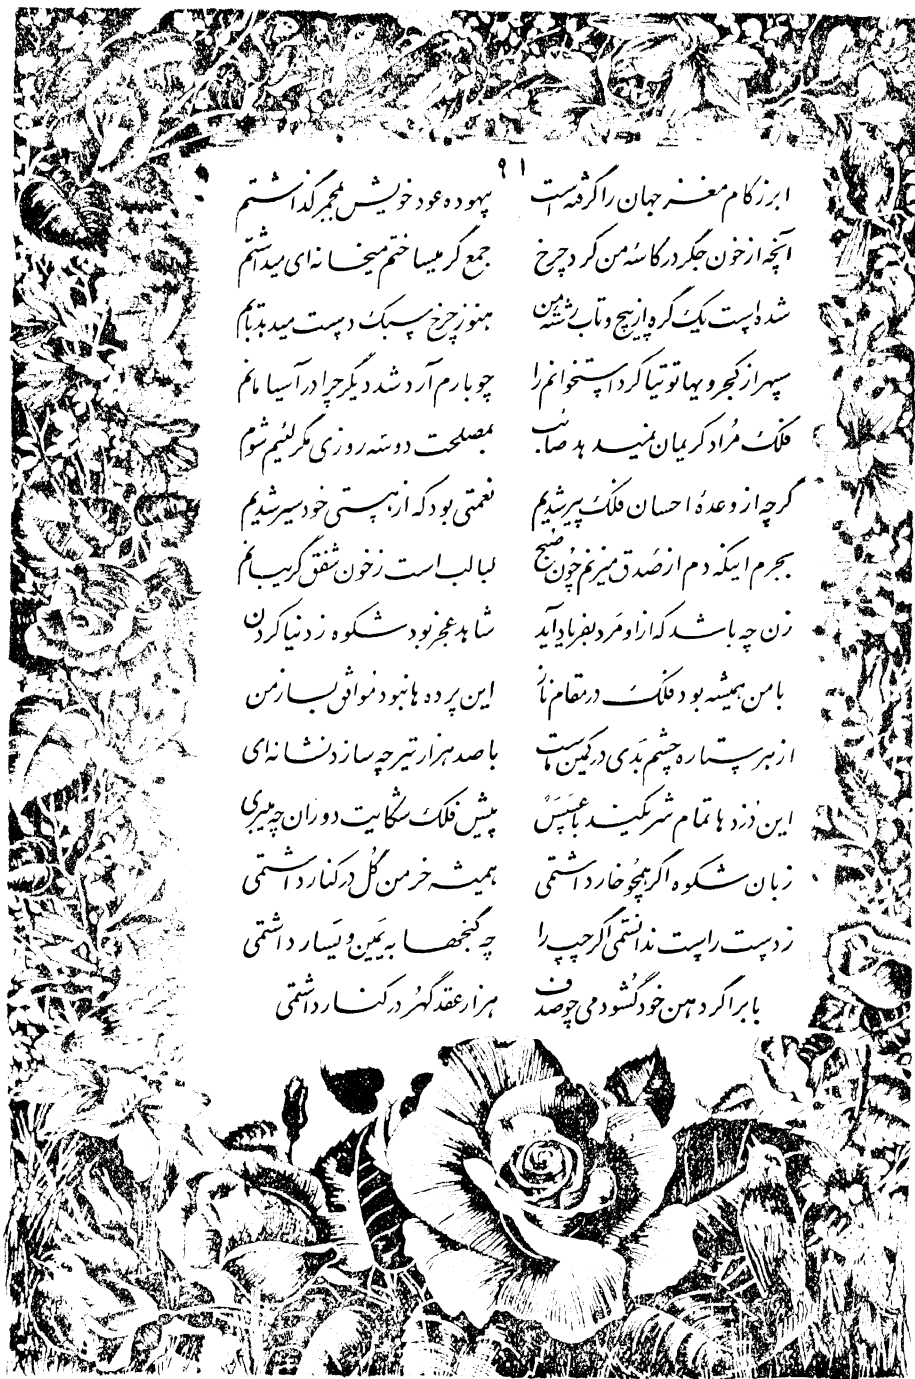 ۹۱
ابر زکام مغز جهان را گرفته است بیهوده عود خویش بمجمر گذاشتم
آنچه از خون جگر در کاسهٔ من کرد چرخ جمع گر میساختم میخانه‌ای میداشتم
شده است یک گره از پیچ و تاب رشتهٔ من هنوز چرخ سبک دست میدهد تابم
سپهر از کجرویها توتیا کرد استخوانم را چو بارم آرد شد دیگر چرا در آسیا مانم
فلک مُراد کریمان نمیدهد صائب بمصلحت دوسه روزی مگر لئیم شوم
گرچه از وعدهٔ احسان فلک پیر شدیم نعمتی بود که از هستی خود سیر شدیم
بجرم اینکه دم از صدق میزنم چون صبح لبالب است زخون شفق گریبانم
زن چه باشد که از او مَرد بفریاد آید شاهد عجز بود شکوه ز دنیا کردن
با من همیشه بود فلک در مقام ناز این پرده ها نبود مُوافق بساز من
از هر ستاره چشم بَدی در کمین ماست با صد هزار تیر چه سازد نشانه‌ای
این دُزدها تمام شریکند با عَسَسْ پیش فلک شکایت دوران چه میبری
زبان شکوه اگر همچو خار داشتمی همیشه خرمن گُل در کنار داشتمی
ز دست راست ندانستمی اگر چپ را چه گنجها به یَمین و یَسار داشتمی
بابر اگر دهن خود گُشودمی چو صدف هزار عقد گهُر در کنار داشتمی